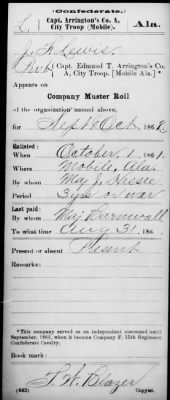 Confederate.
L | Capt. Arrington's Co. A, City Troop (Mobile). | Ala.
J. H. Lewis
Pvt, Capt. Edmund T. Arrington's Co. A, City Troop. [Mobile Ala.*]
Appears on
Company Muster Roll
of the organization named above,
for Sept & Oct, 1862
Enlisted:
When October 1, 1861.
Where Mobile, Ala.
By whom Maj J. Hessee
Period 3 yrs or war
Last paid:
By whom Maj Barnwall
To what time Aug 31, 186
Present or absent Present
Remarks:
*This company served as an independent command until
September, 1863, when it became Company F, 15th Regiment
Confederate Cavalry.
Book mark:
T. W. Blazer
(642) Copyist.